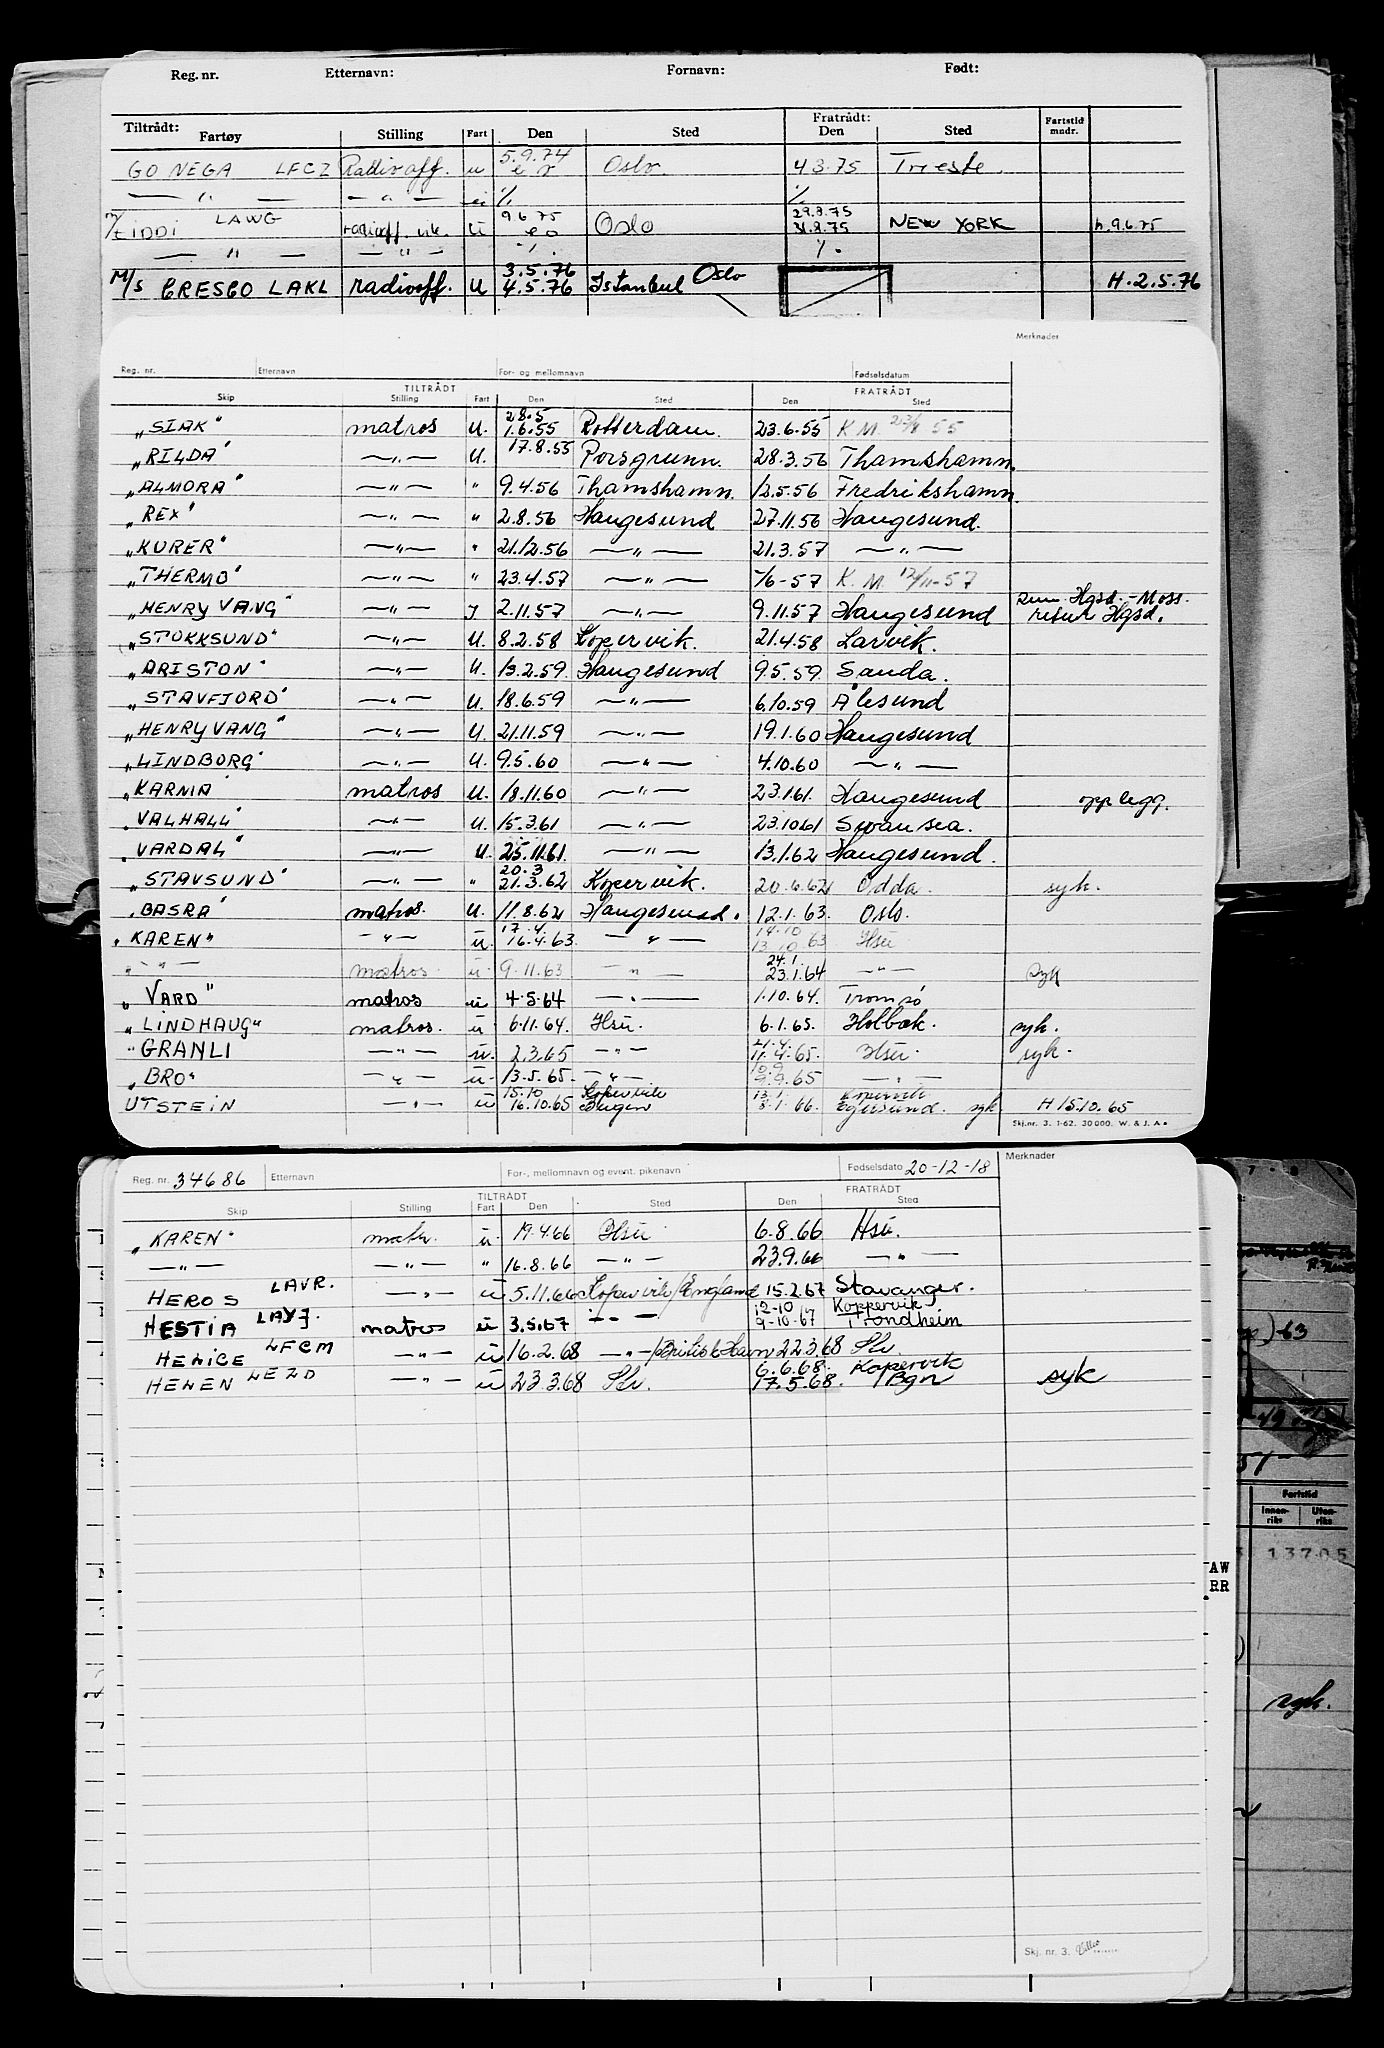 Reg. nr. Etternavn: Fornavn: Født:
Tiltrådt: Fratrådt:
Fartøy Stilling Fart Den Sted Den Sted Fartstid mndr.
GO NEGA LFCZ Radiooff. u 5.9.74 Oslo 4.3.75 Trieste.
— " — — " — ü ·/. ·/.
LAWG radiooff. vik. ü 9.6.75 Oslo 29.8.75 31.8.75 NEW YORK h.9.6.75
— " — — " — ·/. ·/.
M/S CRESCO LAKL radiooff. U 3.5.76 4.5.76 Istanbul Oslo H.2.5.76
Merknader
Reg. nr. Etternavn For- og mellomnavn Fødselsdatum
TILTRÅDT FRATRÅDT
Skip Stilling Fart Den Sted Den Sted
"SIAK" matros U. 28.5 1.6.55 Rotterdam. 23.6.55 K.M. 55
"RILDA" — " — U. 17.8.55 Porsgrunn. 28.3.56 Thamshamn.
"ALMORA" — " — " 9.4.56 Thamshamn. 12.5.56 Fredrikshamn.
"REX" — " — " 2.8.56 Haugesund 27.11.56 Haugesund.
"KURER" — " — " 21.12.56 — " — 21.3.57 — " —
"THERMO" — " — " 23.4.57 — " — -/6-57 K.M. 12/11-57
"HENRY VANG" — " — I 2.11.57 — " — 9.11.57 Haugesund Hgsd. - Moss - retur Hgsd.
"STOKKSUND" — " — U. 8.2.58 Kopervik. 21.4.58 Larvik.
"ARISTON" — " — U. 13.2.59 Haugesund 9.5.59 Sauda.
"STAVFJORD" — " — U. 18.6.59 — " — 6.10.59 Ålesund
"HENRY VANG" — " — U. 21.11.59 — " — 19.1.60 Haugesund
"LINDBORG" — " — U. 9.5.60 — " — 4.10.60 — " —
"KARNIA" matros U. 18.11.60 — " — 23.1.61. Haugesund opplegg.
"VALHALL" — " — U. 15.3.61 — " — 23.10.61 Swansea.
"VARDAL" — " — U. 25.11.61. — " — 13.1.62 Haugesund.
"STAVSUND" — " — " 20.3 21.3.62 Kopervik. 20.6.62 Odda. syk.
"BASRA" matros. U. 11.8.62 Haugesund. 12.1.63. Oslo.
"KAREN" — " — ü. 17.4 16.4.63. — " — 14.10 13.10 63 Hsu
" — " — matros ü. 9.11.63 — " — 24.1. 23.1.64 — " — syk
"VARD" matros ü 4.5.64 — " — 1.10.64. Tromsø
"LINDHAUG" matros. ü. 6.11.64. Hsu. 6.1.65. Holbæk. syk.
"GRANLI — " — ü. 2.3.65 — " — 21.4. 11.4.65. Hsu. syk.
"BRO" — " — ü. 13.5.65. — " — 10.9 9.9.65 — " —
UTSTEIN — " — ü 15.10 16.10.65 Kopervik Bergen 13.1 8.1.66. Kopervik Egersund. syk H 15.10.65
Skj.nr. 3. 1-62. 30000. W. & J. A.
Merknader
Reg. nr. 34686 Etternavn For-, mellomnavn og event. pikenavn Fødselsdato 20-12-18
TILTRÅDT FRATRÅDT
Skip Stilling Fart Den Sted Den Sted
"KAREN" matr. ü. 19.4.66 Hsu 6.8.66 Hsu.
— " — — " — " 16.8.66 — " — 23.9.66 — " —
HEROS LAVR. — " — ü 5.11.66 Kopervik/England 15.2.67 Stavanger.
HESTIA matros ü 3.5.67 — " — 12-10 9-10-67 Koppervik Trondheim
HELICE LFCM — " — ü 16.2.68 — " — /British Havn 22.3.68 Slv.
HELEN LEZD — " — ü 23.3.68 Slv. 6.6.68. 17.5.68. Kopervik /Bgn syk
Skj. nr. 3.
63
Fartstid
Innenriks Utenriks
13705
AW
RR
syk.